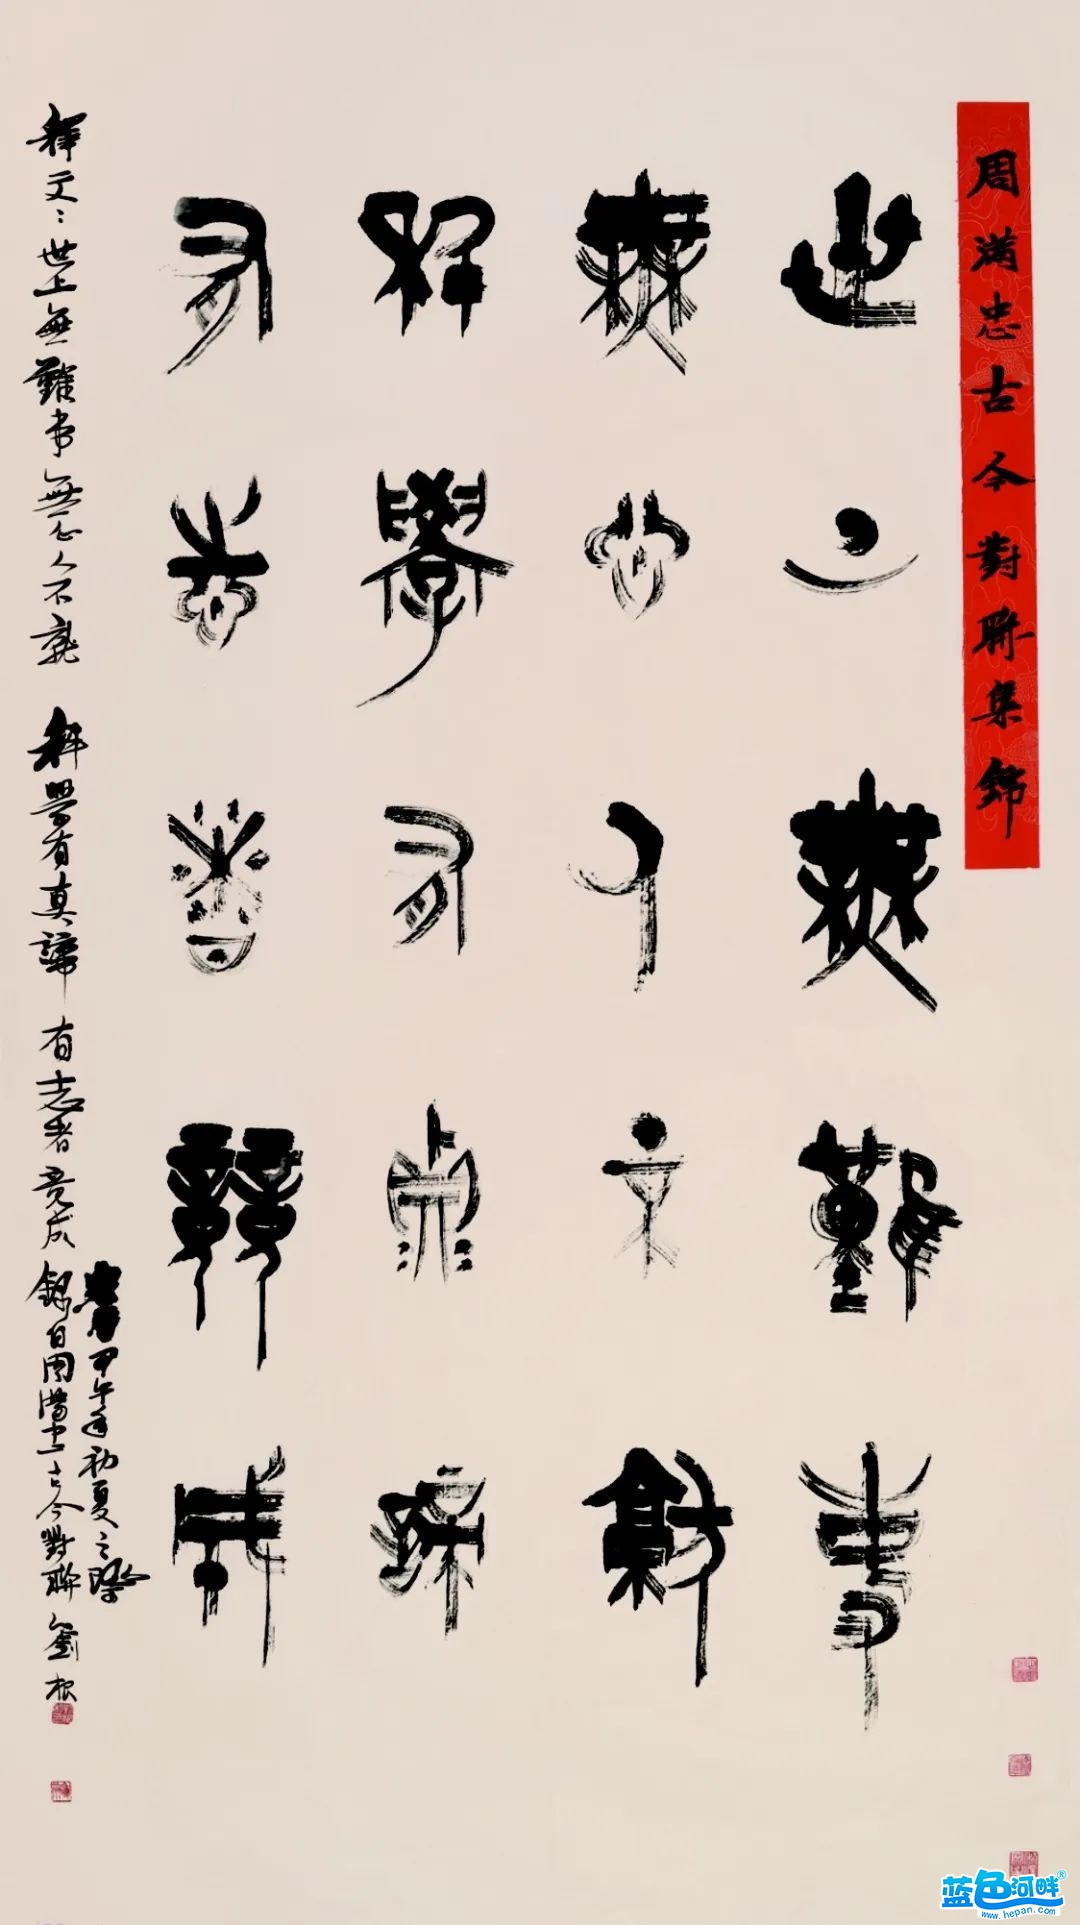 周滿忠古今對聯集錦
世上無難事
無心人不
科學有真諦
有志者竟成
甲午年初夏之際
釋文：世上無難事無心人不 科學有真諦 有志者竟成 錄自周滿忠古今對聯 劉根
蓝色河畔®
www.hepan.com